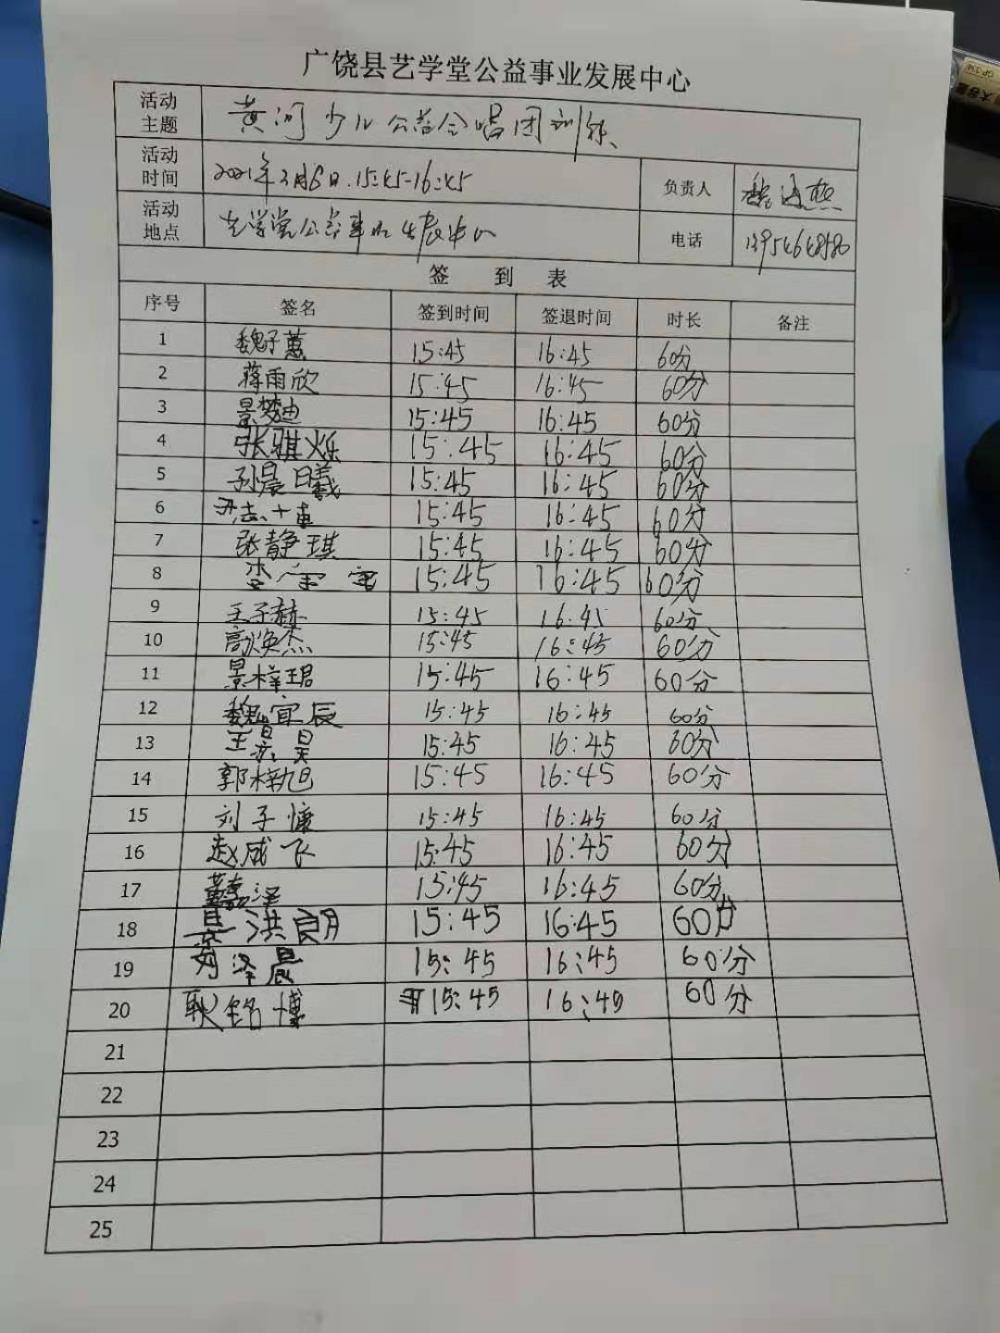 广饶县艺学堂公益事业发展中心
活动主题 黄河少儿公益合唱团训练
活动时间 2021年3月6日.15:45-16:45 负责人
活动地点 艺学堂公益事业发展中心 电话
签 到 表
序号 签名 签到时间 签退时间 时长 备注
1 魏子蕙 15:45 16:45 60分
2 蒋雨欣 15:45 16:45 60分
3 景梦迪 15:45 16:45 60分
4 张骐烁 15:45 16:45 60分
5 孙晨曦 15:45 16:45 60分
6 15:45 16:45 60分
7 张静琪 15:45 16:45 60分
8 15:45 16:45 60分
9 王子赫 15:45 16:45 60分
10 高焕杰 15:45 16:45 60分
11 景梓珺 15:45 16:45 60分
12 魏宜辰 15:45 16:45 60分
13 王昊 15:45 16:45 60分
14 郭梓旭 15:45 16:45 60分
15 刘子慷 15:45 16:45 60分
16 赵成飞 15:45 16:45 60分
17 嘉泽 15:45 16:45 60分
18 景洪朗 15:45 16:45 60分
19 刘泽晨 15:45 16:45 60分
20 耿铭博 15:45 16:45 60分
21
22
23
24
25